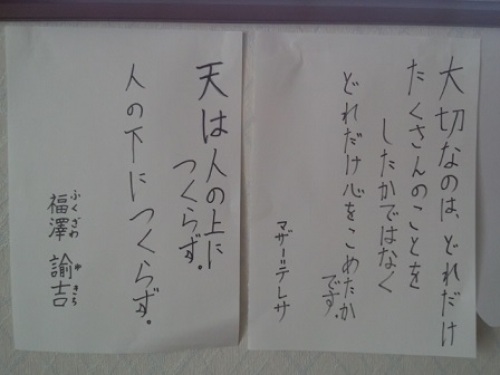 大切なのは、どれだけ
たくさんのことを
したかではなく
どれだけ心をこめたか
です。
マザーテレサ
天は人の上に
つくらず。
人の下につくらず。
福澤 諭吉
ふくざわ ゆきち